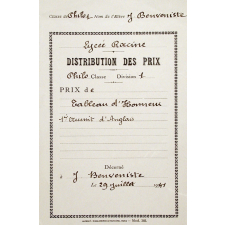 Classe de Philo Nom de l'Elève J Benveniste
Lycée Racine
DISTRIBUTION DES PRIX
Philo Classe Division 1
PRIX de
Tableau d'Honneur
1er accessit d'Anglais
Décerné
à J Benveniste
le 29 juillet 1941